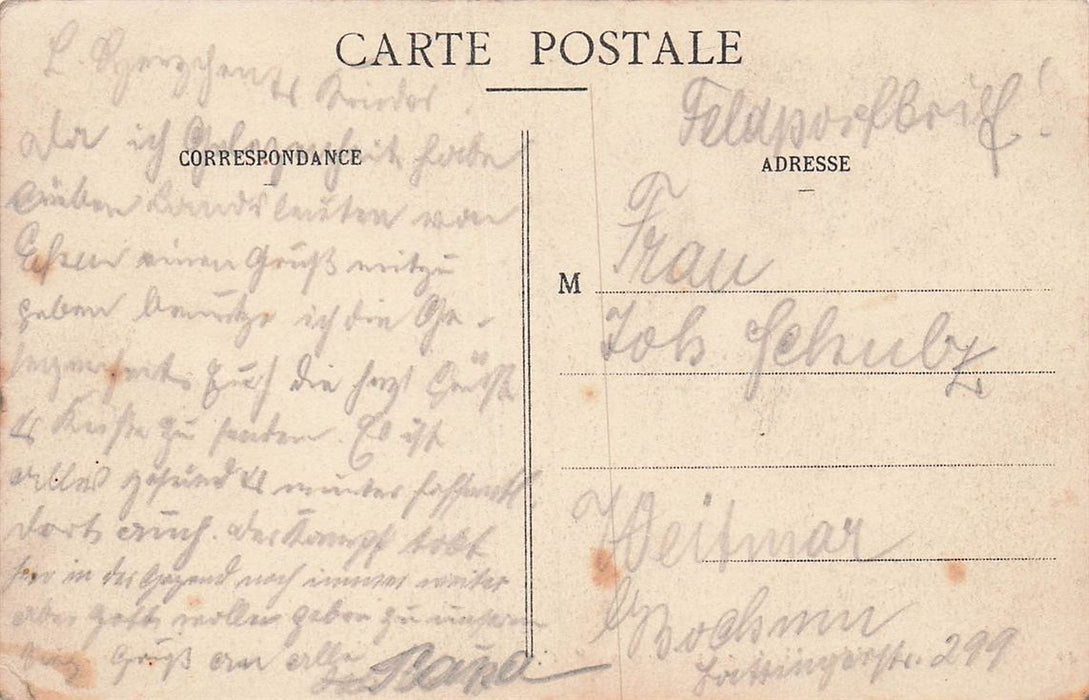 CARTE POSTALE
CORRESPONDANCE
ADRESSE
L. Herzchen u Kinder!
Da ich Gelegenheit habe
lieben Landsleuten von
einen Gruß mitzu
geben benutze ich die Ge-
legenheit Euch die herzl Grüße
u Küsse zu senden. Es ist
alles gesund u munter hoffentl.
dort auch. Der Kampf tobt
hier in der Gegend noch immer weiter
aber Gott wolle geben zu unserm
Gruß an alle
Feldpostbrief!
M Frau
Joh Schulz
Weitmar
b/Bochum
Hattingerstr. 299